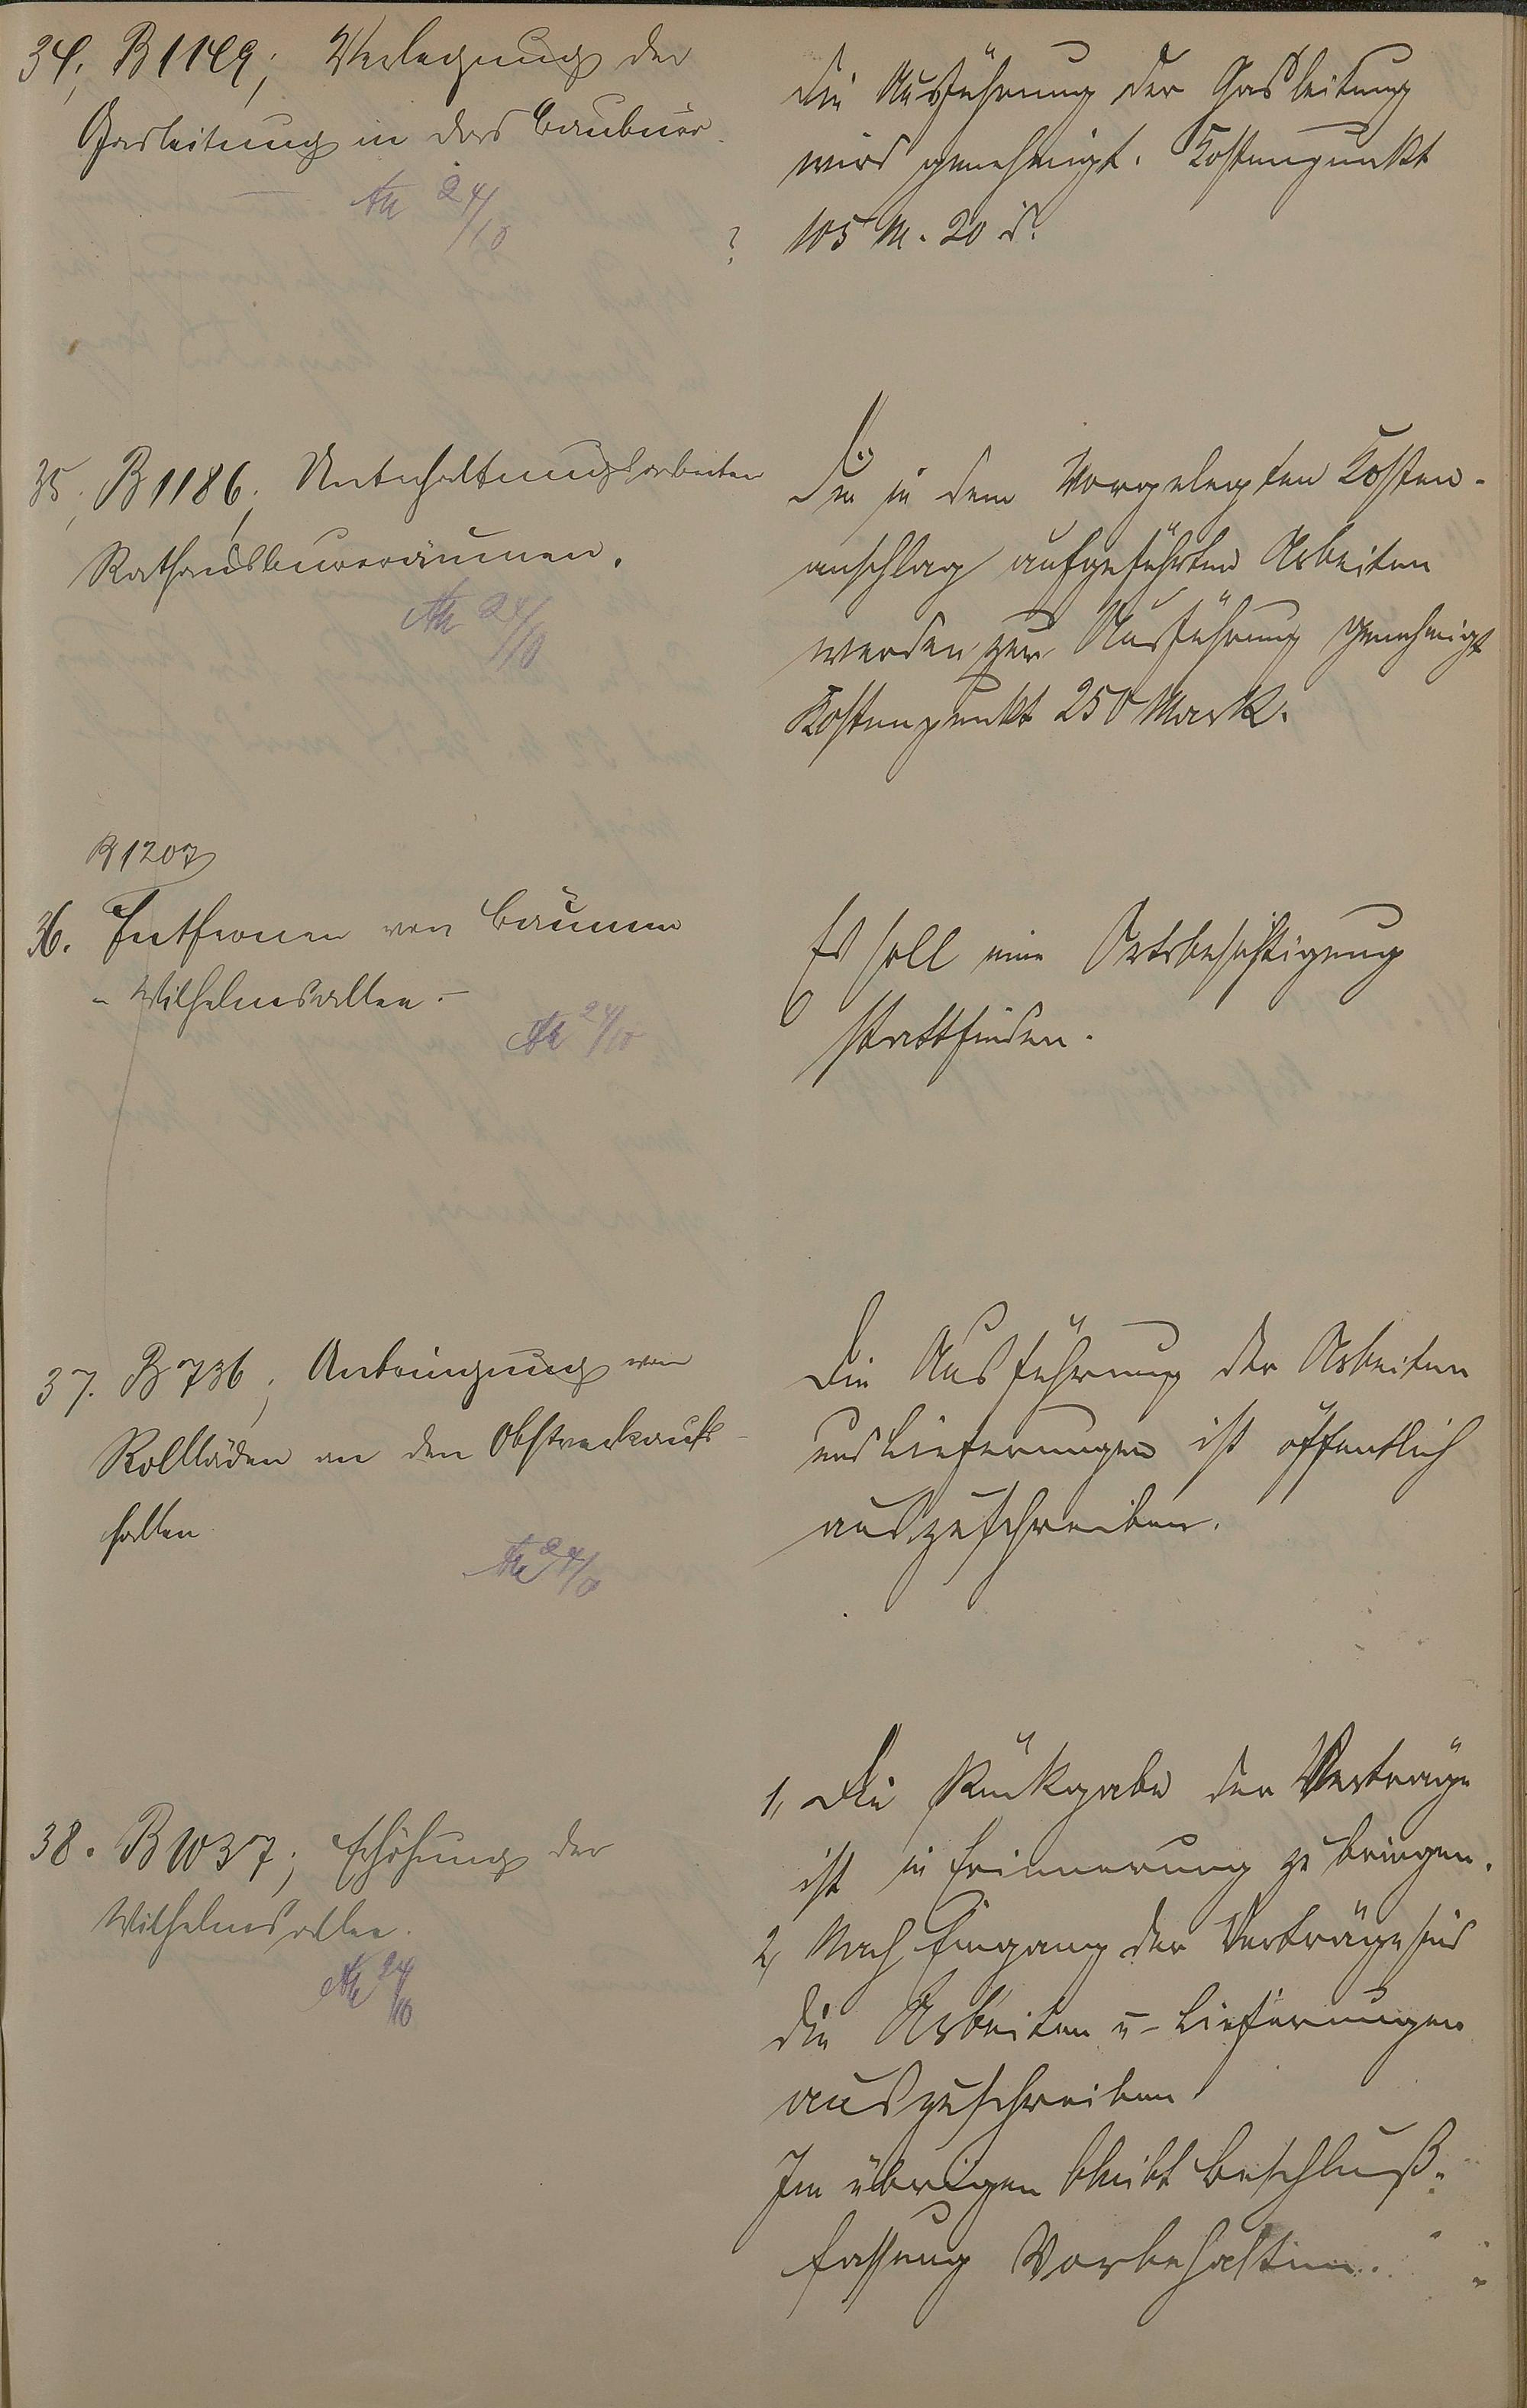 34, B 1149; Verlegung der
Gasleitung in das Baubüro.
24/10
die Ausführung der Gasleitung
wird genehmigt. Kostenpunkt
? 105 M. 20 d.
35, B 1186, Unterhaltungsarbeiten
Rathausbureauräumen.
24/10
Die in dem Vorgelegten Kosten-
anschlag aufgeführten Arbeiten
werden zur Ausführung genehmigt
Kostenpunkt 250 Mark.
B 1207
36. Entfernen von Bäumen
- Wilhelmsallee. -
24/10
Es soll eine Ortsbesichtigung
stattfinden.
37. B 736, Anbringung von
Rollläden an den Obstverkaufs-
hallen
24/10
Die Ausführung der Arbeiten
und Lieferungen ist öffentlich
auszuschreiben.
38. B 1037; Erhöhung der
Wilhelmsallee.
24/10
1, Die Rückgabe der Verträge
ist in Erinnerung zu bringen.
2, Nach Eingang der Verträge sind
die Arbeiten u- Lieferungen
auszuschreiben
Im übrigen bleibt Beschluß-
fassung Vorbehalten.